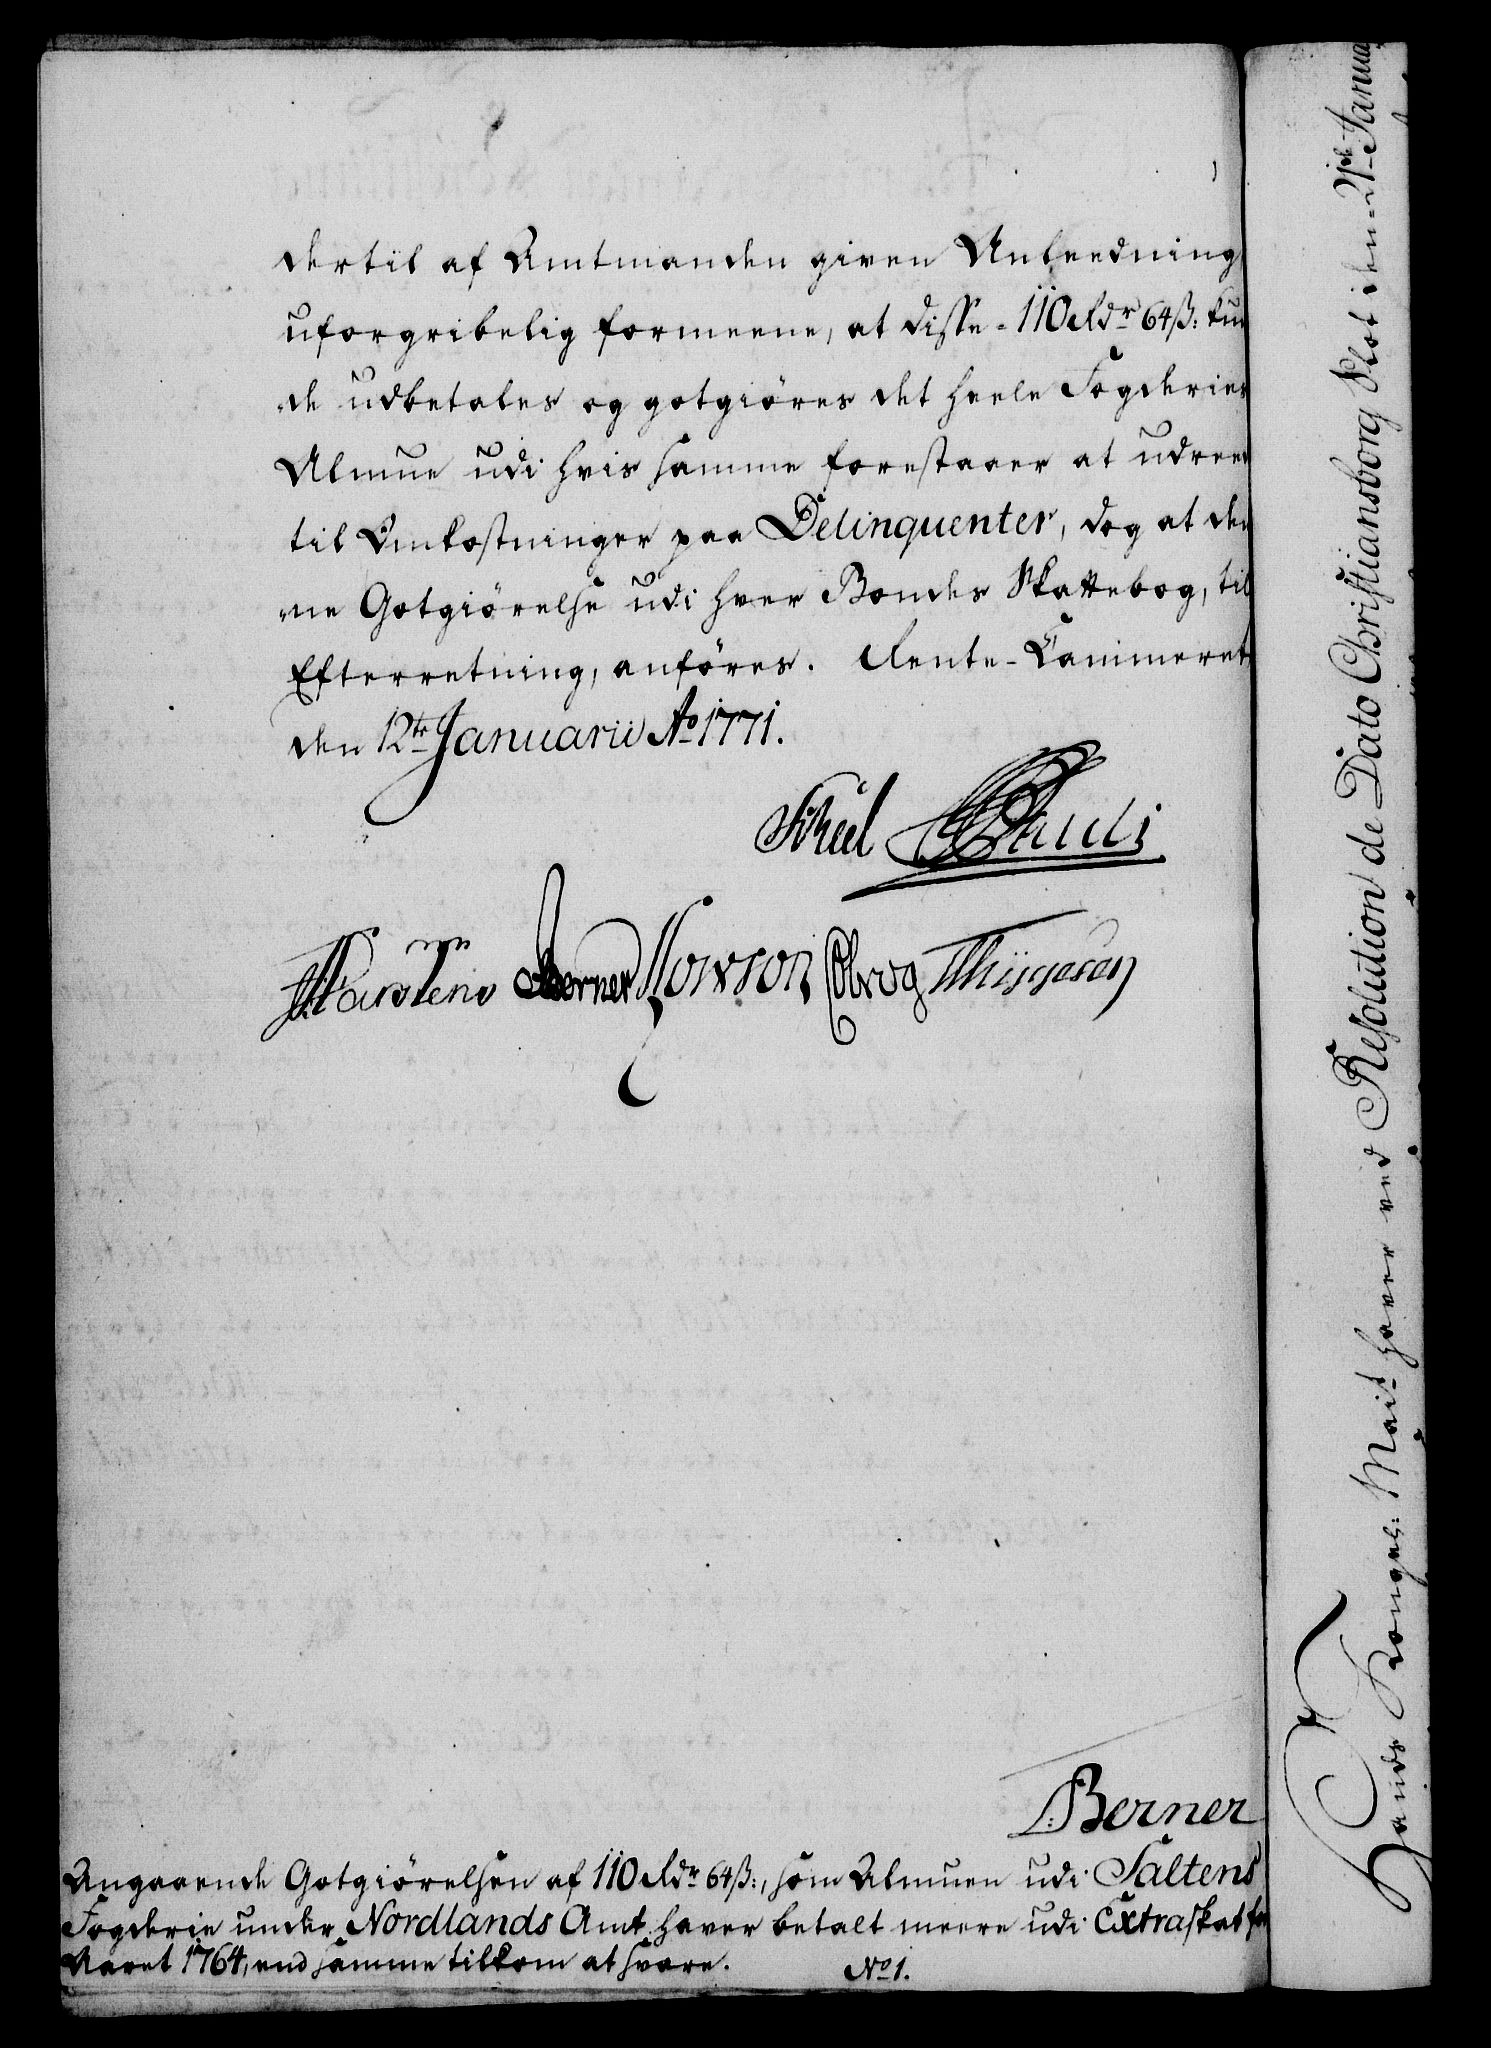 dertil af Amtmanden given Anleedning
uforgribelig formeene, at disse = 110 Rdr 64 ß: kun
„de udbetales og gotgiöres det heele Fogderies
Almue udi hvis samme forestaaer at udrede
til Omkostninger paa Delinquenter, dog at den
„ne Gotgiörelse udi hver Bondes Skattebog, til
Efterretning, anföres. Rente-Cammeret
den 12te Januarii Ao 1771.
Scheel Pauli
Carstens Berner Howson Obrog Thygesen
L: Berner
Angaaende Gotgiörelsen af 110 Rdr 64 ß:, som Almuen udi Saltens
Fogderie under Nordlands Amt haver betalt meere udi Extraskat for
Aaret 1764, end samme tilkom at svare.
No 1.
Hands Kongel: Mait haver ved Resolution de Dato Christiansborg Slot den 21de Janua